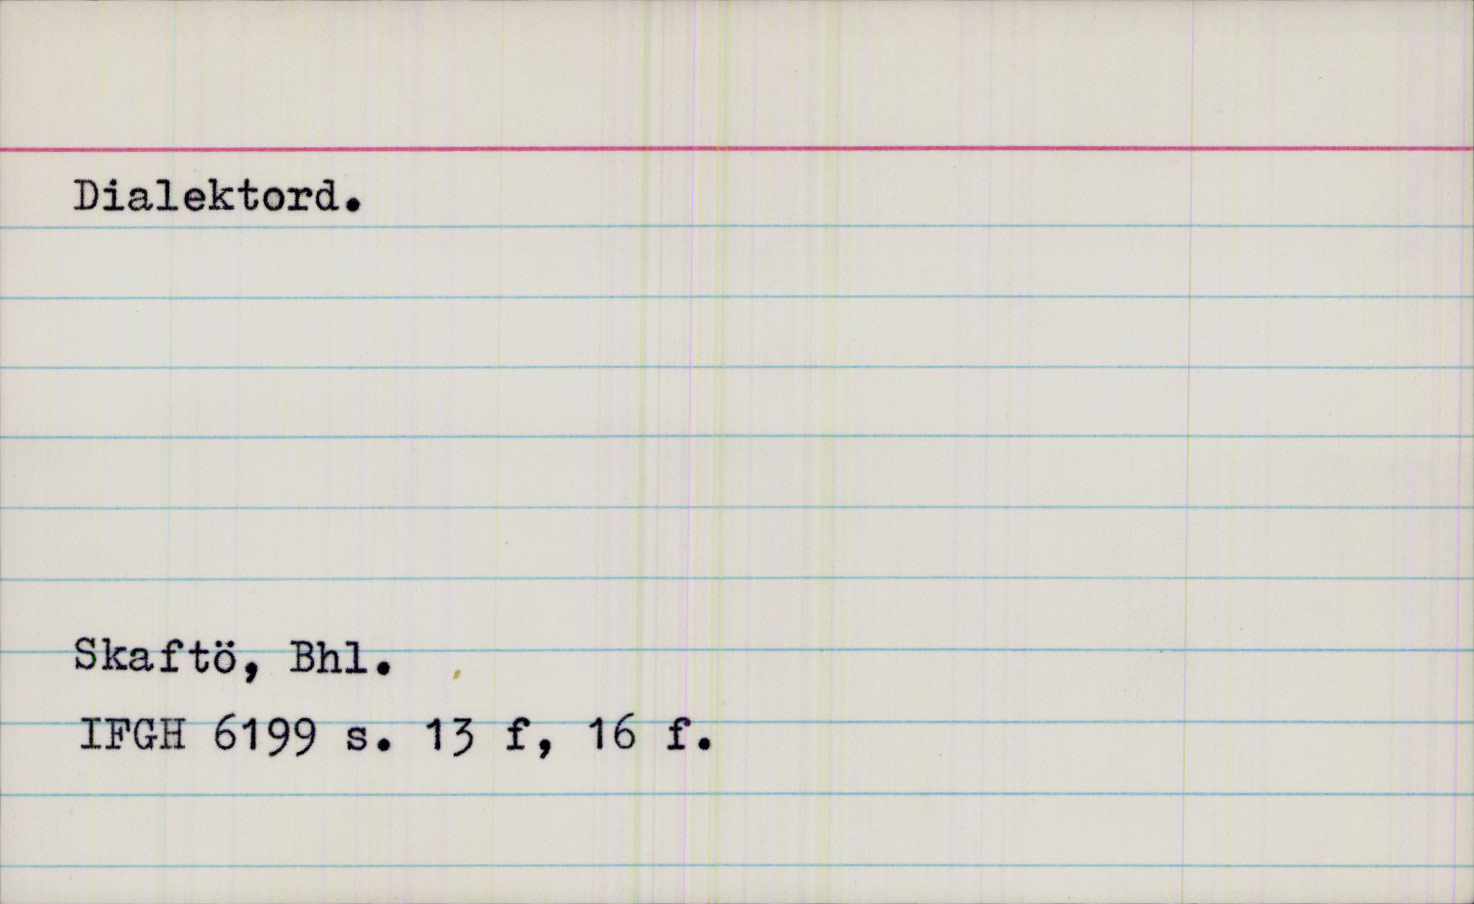 Dialektord.
Skaftö, Bhl.
IFGH 6199 s. 13 f, 16 f.